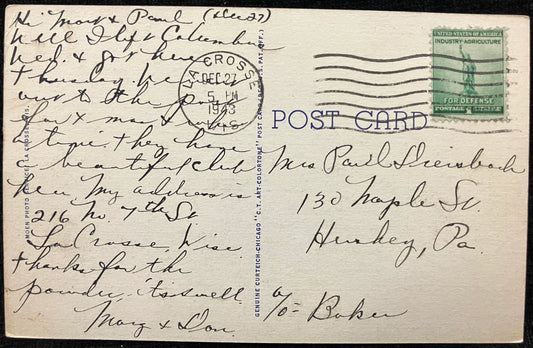 Hi Mary & Paul (Dec 27)
Well I left Columbia
Wed. & got here
Thursday. We
out to the
for x mas &
time. they have
a beautiful club
here My address is
216 No. 7th St
La Crosse, Wisc.
thanks for the
powder, its swell.
Mary & Don.
LA CROSSE
DEC 27
5 PM
1943
WIS.
UNITED STATES OF AMERICA
INDUSTRY-AGRICULTURE
FOR DEFENSE
POSTAGE
POST CARD
Mrs Paul
130 Maple St.
Hershey, Pa.
c/o Baker
MOEN PHOTO SERVICE, LA CROSSE, WIS.
GENUINE CURTEICH-CHICAGO "C.T. ART-COLORTONE" POST CARD (REG. U.S. PAT. OFF.)